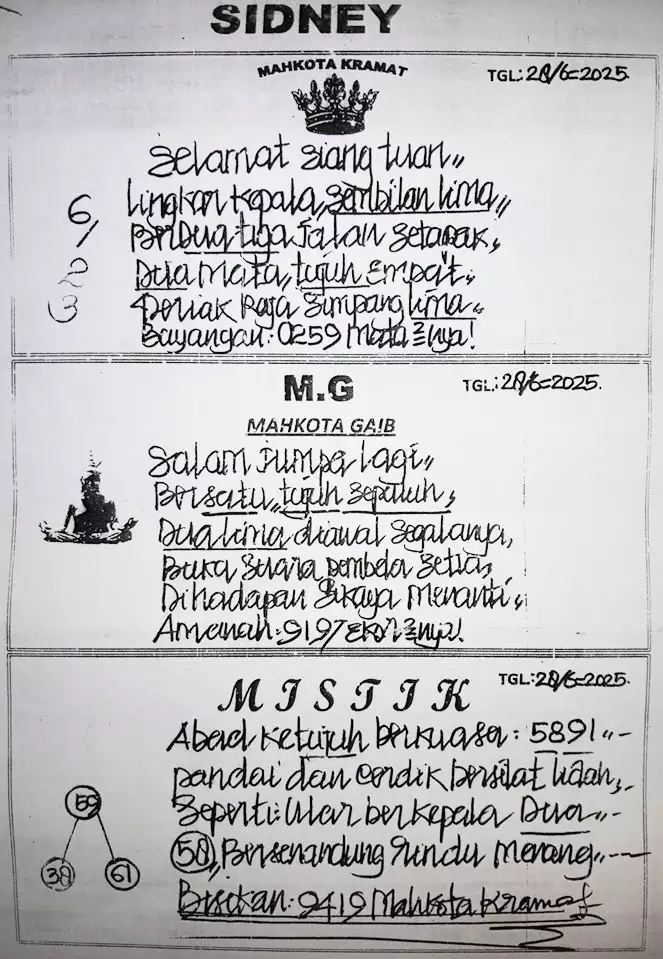 SIDNEY
MAHKOTA KRAMAT
TGL: 28/6=2025.
Selamat siang tuan,,
Lingkar kepala, sembilan lima,,
6, Ber Dua tiga jalan setapak,
2 Dua mata, tujuh Empat,
3 Periak Raja Simpang lima,,
Bayangan: 0259 Mata2nya!
M.G
TGL: 28/6=2025.
MAHKOTA GAIB
Salam jumpa lagi,,
Bersatu,, tujuh sepuluh,
Dua lima diawal segalanya,
Buka suara pembela setia,
Dihadapan sikaya Menanti,
Amanah: 9197 Ekor2nya!
MISTIK
TGL: 28/6=2025.
Abad ketujuh berkuasa: 5891,,-
pandai dan cerdik bersilat lidah,
59
Seperti: Ular berkepala Dua,,-
38 61
58,, Bersenandung rindu Menang,,--
Bisikan: 9419 Mahkota kramat